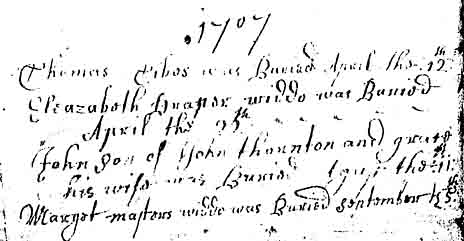 1707
Thomas was Buried April the 12th
Eleazaboth Draper widdo was Buried
April the 25th
John son of John thornton and grace
his wife was Buried the 11th
Margot masters widdo was Buried september 15th